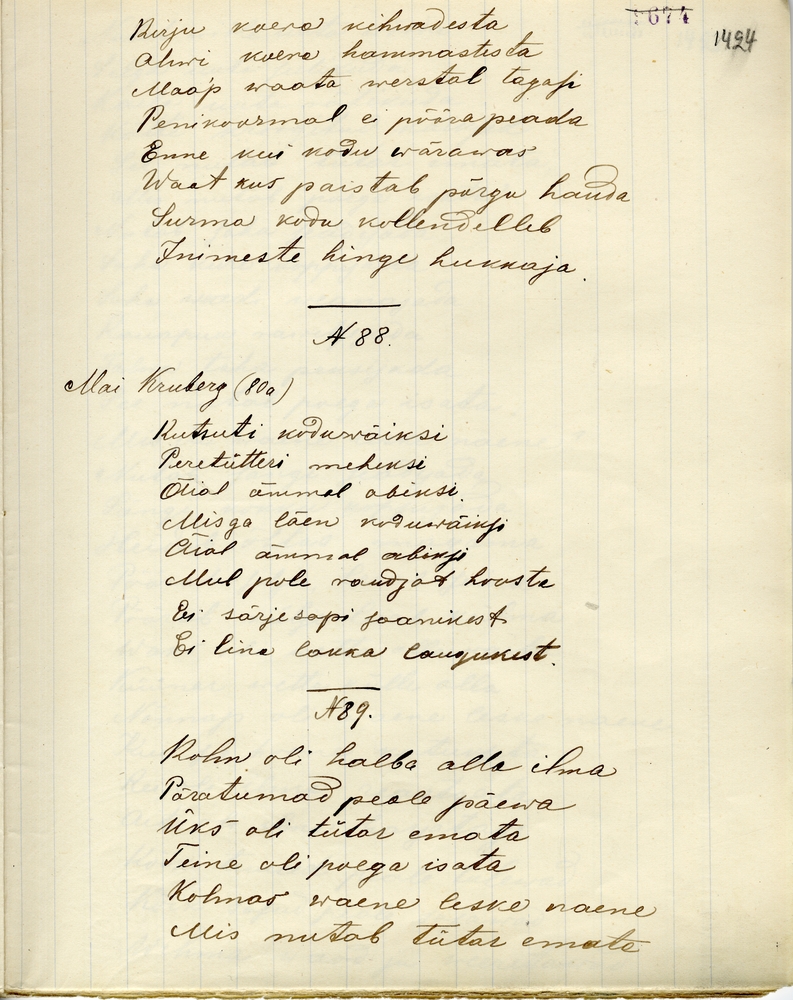 7674
1424
Kirju koera kihwadesta
Ahwi koera hammastesta
Maap waata werstal tagasi
Penikoormal ei pööra peada
Enne kui kodu wärawas
Waat kus paistab põrgu hauda
Surma kodu kollendelleb
Inimeste hinge hukkaja.
N 88.
Mai Kruberg (80a)
Kutsuti koduwäiksi
Peretütteri meheksi
Äial ämmal abiksi.
Misga läen koduwäiksi
Äial ämmal abiksi
Mul pole raudjat hoosta
Ei särjesapi saanikest
Ei lina lakka laugukest.
N 89.
Kolm oli halba alla ilma
Päratumad peale päewa
Üks oli tütar emata
Teine oli poega isata
Kolmas waene leske naene
Mis nutab tütar emata